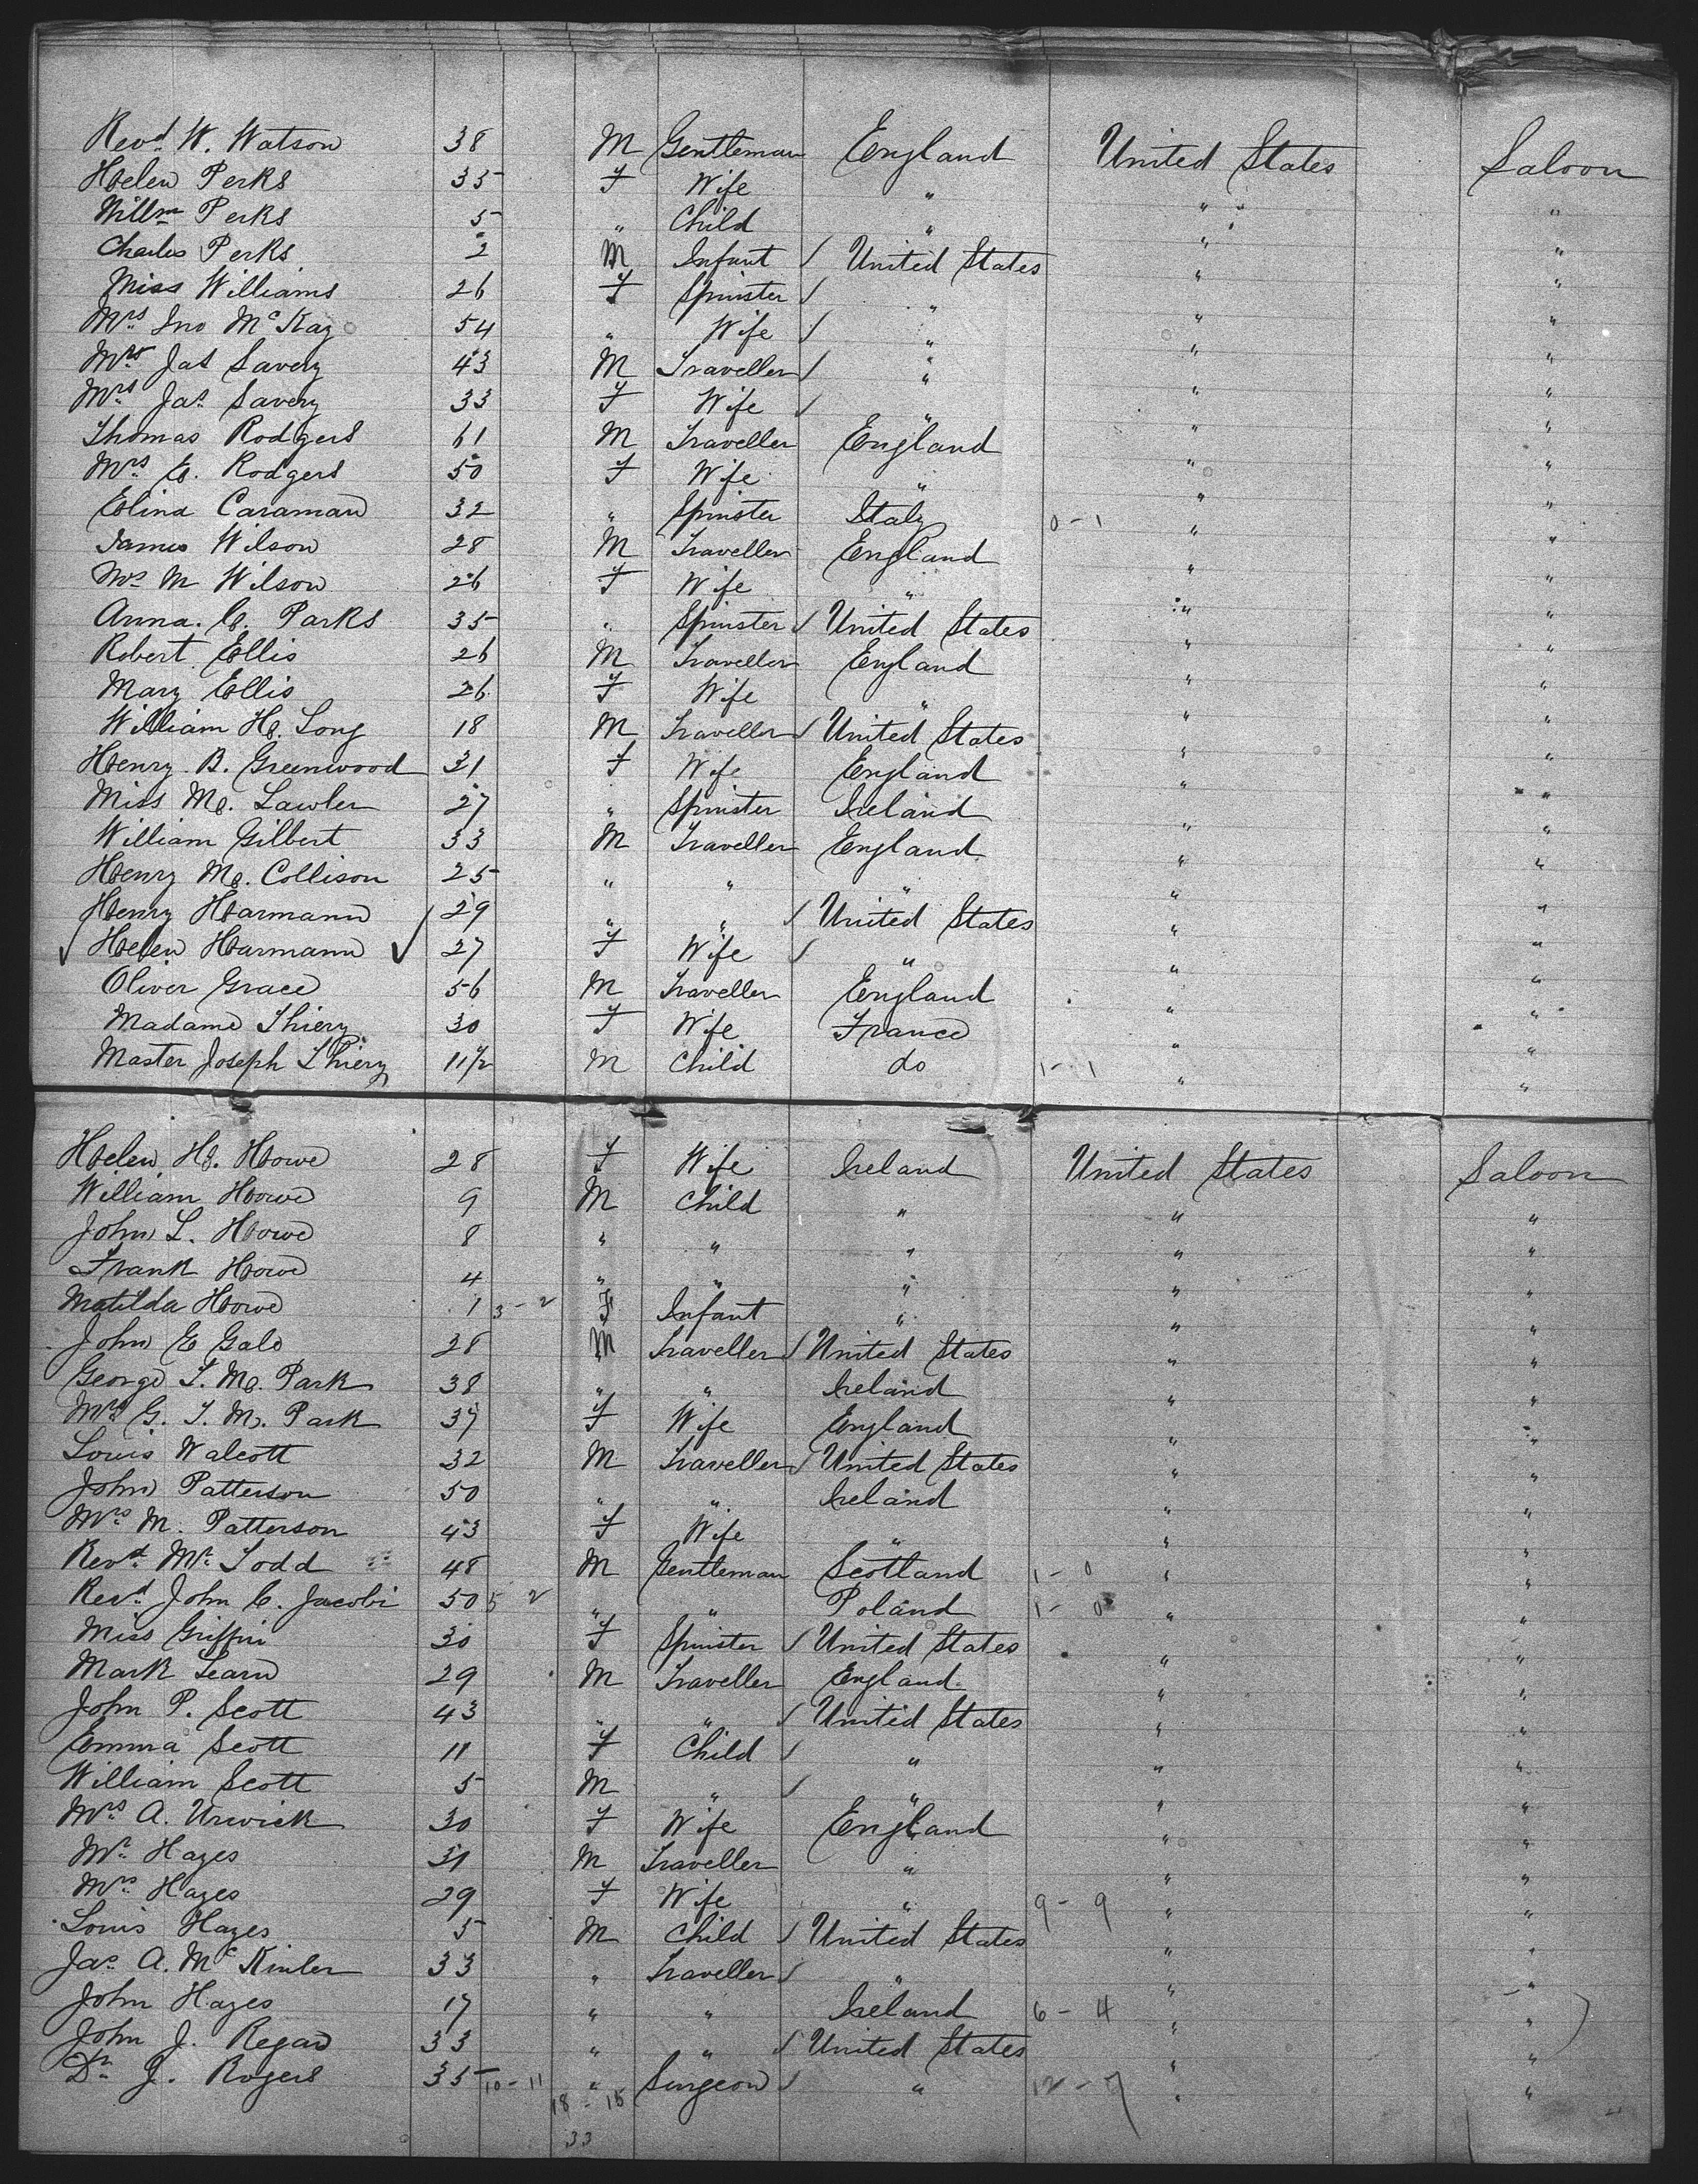 Revd. W. Watson 38 M Gentleman England United States Saloon
Helen Perks 35 F Wife " " "
Willm Perks 5 " Child " " "
Charles Perks 2 M Infant / United States " "
Miss Williams 26 F Spinster / " " "
Mrs. Jno McKay 54 " Wife / " " "
Mr. Jas Savery 43 M Traveller / " " "
Mrs. Jas. Savery 33 F Wife / " " "
Thomas Rodgers 61 M Traveller England " "
Mrs. C. Rodgers 50 F Wife " " "
Elina Caraman 32 " Spinster Italy 0-1 " "
James Wilson 28 M Traveller England " "
Mrs M Wilson 26 F Wife " " "
Anna. C. Parks 35 " Spinster / United States " "
Robert Ellis 26 M Traveller England " "
Mary Ellis 26 F Wife " " "
William H. Long 18 M Traveller / United States " "
Henry B. Greenwood 31 F Wife England " "
Miss M. Lawler 27 " Spinster Ireland " "
William Gilbert 33 M Traveller England " "
Henry M. Collison 25 " " " " "
Henry Harmann 29 " " / United States " "
✓ Helen Harmann ✓ 27 F Wife / " " "
Oliver Grace 56 M Traveller England " "
Madame Thiery 30 F Wife France " "
Master Joseph Thiery 11/2 M Child do 1-1 " "
Helen H. Howe 28 F Wife Ireland United States Saloon
William Howe 9 M Child " " "
John L. Howe 8 " " " " "
Frank Howe 4 " " " " "
Matilda Howe 1 3-2 F Infant " " "
John E Gale 28 M Traveller / United States " "
George T. M. Park 38 " " Ireland " "
Mrs G. T. M. Park 37 F Wife England " "
Louis Walcott 32 M Traveller / United States " "
John Patterson 50 " " Ireland " "
Mrs. M. Patterson 43 F Wife " " "
Revd. Mr. Todd 48 M Gentleman Scotland 1-0 " "
Revd. John C. Jacobi 50 5 2 " " Poland 1-0 " "
Miss Griffin 30 F Spinster / United States " "
Mark Learn 29 M Traveller England " "
John P. Scott 43 " " / United States " "
Emma Scott 11 F Child / " " "
William Scott 5 M " / " " "
Mrs A. Urwick 30 F Wife England " "
Mr. Hayes 31 M Traveller " " "
Mrs. Hayes 29 F Wife " 9-9 " "
Louis Hayes 5 M Child / United States " "
Jas. A. McKinler 33 " Traveller / " " "
John Hayes 17 " " Ireland 6-4 " "
John J. Regan 33 " " / United States " "
Dr. J. Rogers 35 10-11 " Surgeon / " 12-7 " "
18-15
33